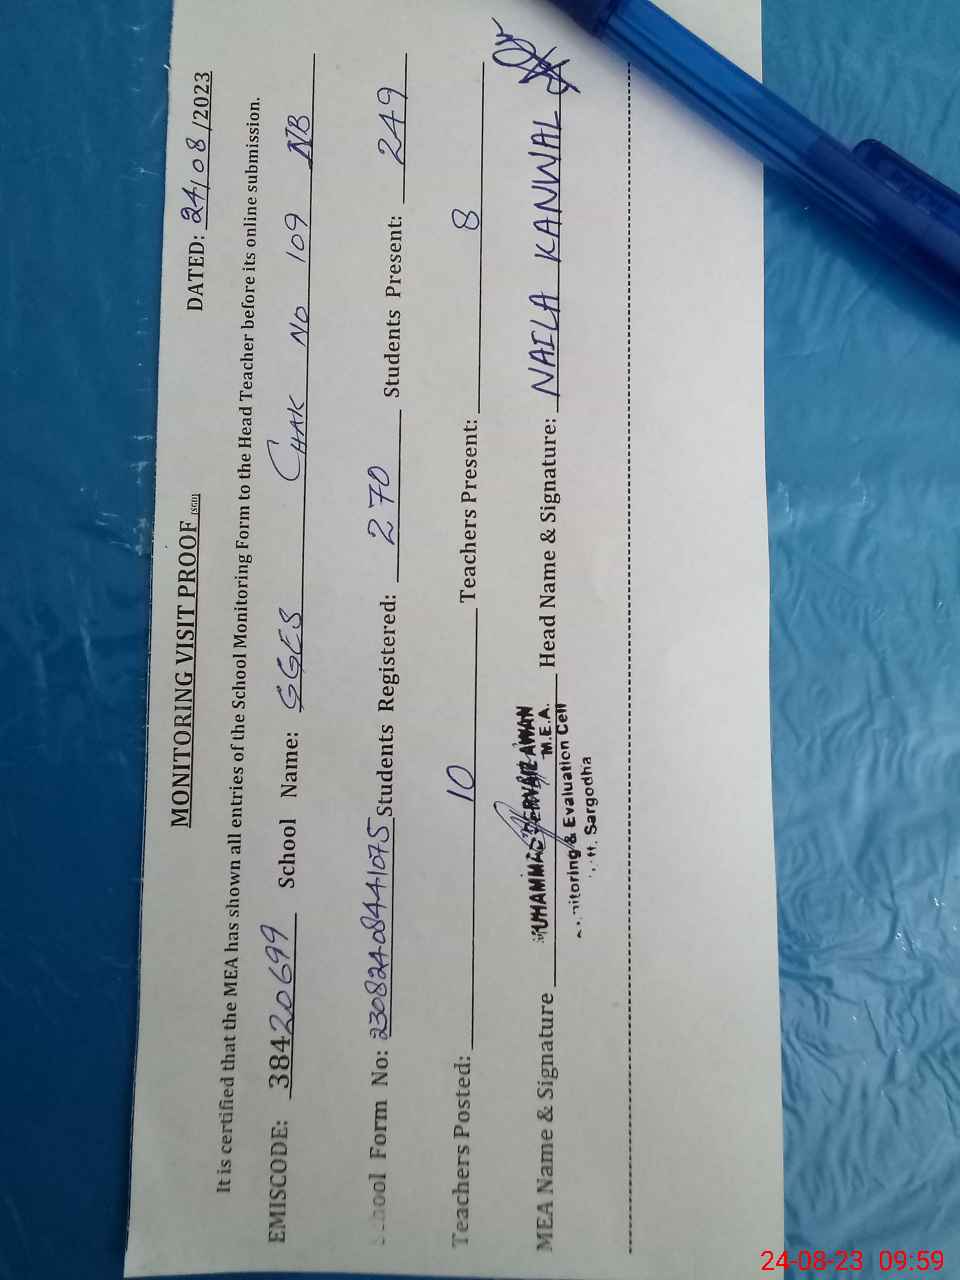 MONITORING VISIT PROOF (SGD)
DATED: 24/08/2023
It is certified that the MEA has shown all entries of the School Monitoring Form to the Head Teacher before its online submission.
EMISCODE: 38420699 School Name: GGES CHAK NO 109 NB
School Form No: 23082408441075 Students Registered: 270 Students Present: 249
Teachers Posted: 10 Teachers Present: 8
MEA Name & Signature Head Name & Signature: NAILA KANWAL
MUHAMMAD AWAN
M.E.A.
Monitoring & Evaluation Cell
Sargodha
24-08-23 09:59